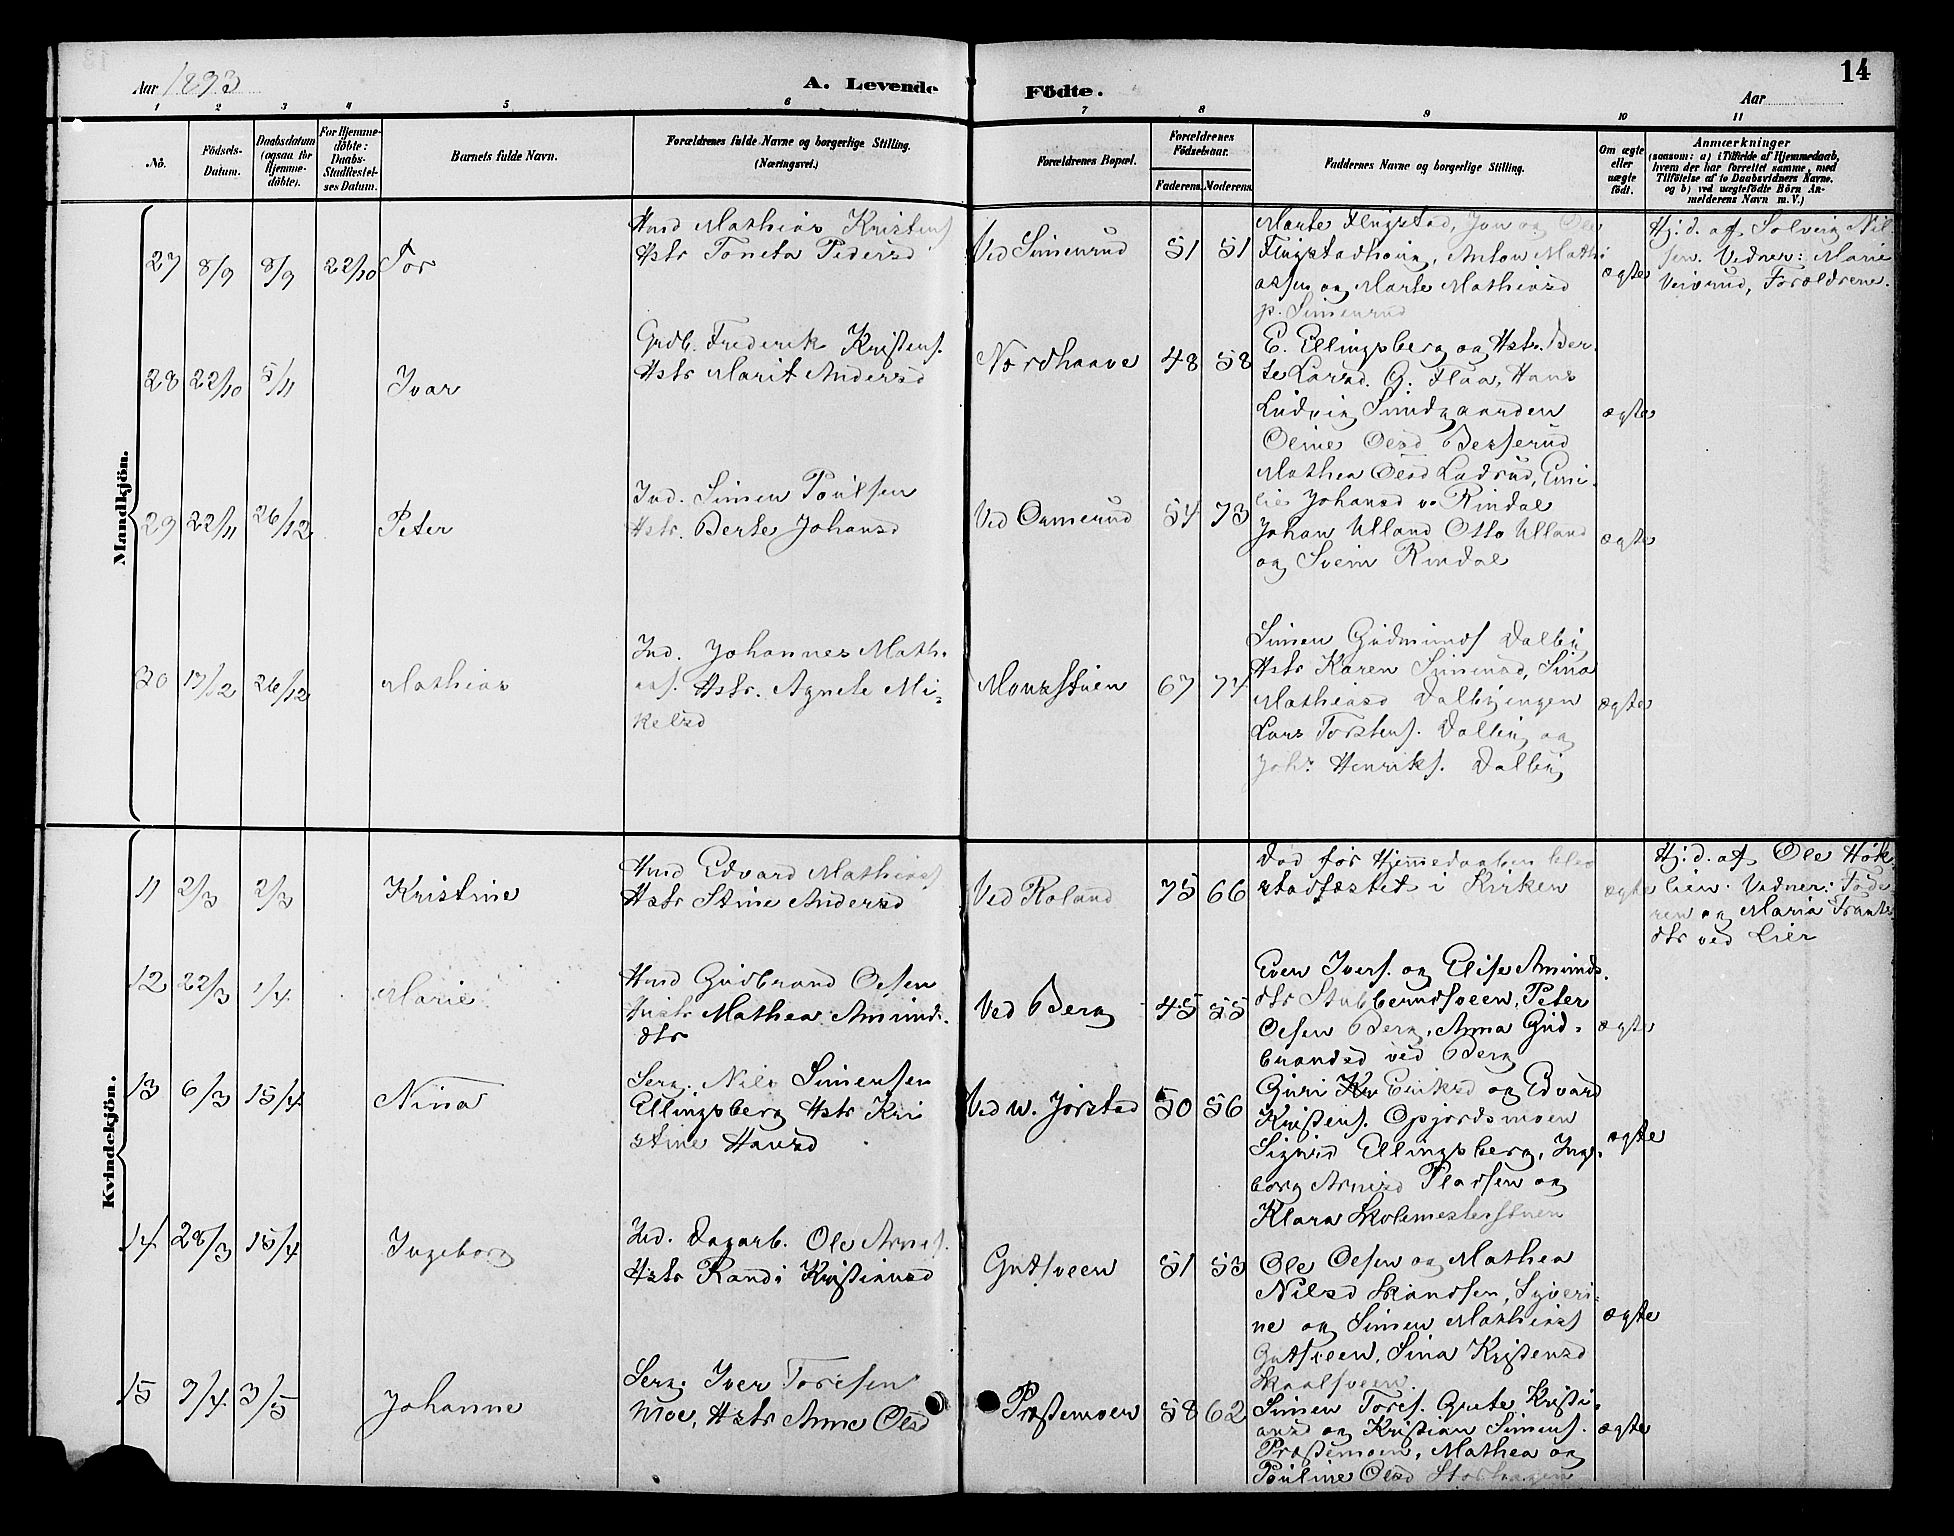 14
Aar 1893
A. Levende Födte.
Aar
1 2 3 4 5 6 7 8 9 10 11
No.
Födsels-
Datum.
Daabsdatum
(ogsaa for
Hjemme-
döbte).
For Hjemme-
döbte:
Daabs-
Stadfæstel-
ses Datum.
Barnets fulde Navn.
Forældrenes fulde Navne og borgerlige Stilling.
(Næringsvei.)
Forældrenes Bopæl.
Forældrenes
Födselsaar.
Faderens. Moderens.
Faddernes Navne og borgerlige Stilling.
Om ægte
eller
uægte
födt.
Anmærkninger
(saasom: a) i Tilfælde af Hjemmedaab,
hvem der har forrettet samme, med
Tilföielse af to Daabsvidners Navne,
og b) ved uægtefödte Börn An-
melderens Navn m. V.)
Mandkjön.
27 8/9 8/9 22/10 Tor
Hmd Mathias Kristens
Hstr Toneta Pedersd
Ved Simenrud 51 51
Marte Flugstad, Jon og Ole
Flugstadhoug, Anton Mathi
assen og Marte Mathiasd
p. Simenrud
ægte
Hj. d. af Solveig Nil-
sen. Vidner: Marie
Veisrud, Forældrene.
28 22/10 5/11 Ivar
Grdb. Frederik Kristens.
Hstr Marit Andersd
Nordhaave 48 58
E. Ellingsberg og Hstr. Ber-
te Larsd. G. Flaa, Hans
Ludvig Sundgaarden
Oline Olsd Besserud
ægte
29 22/11 26/12 Peter
Ind. Simen Poulsen
Hstr. Berte Johansd
Ved Onnerud 54 73
Mathea Olsd Ladsrud, Emi-
lie Johansd v. Rindal
Johan Ulland Otto Ulland
og Svein Rindal
ægte
30 13/12 26/12 Mathias
Ind. Johannes Math-
ias. Hstr. Agnete Mi-
kelsd
Monsstuen 67 74
Simen Gudmunds Dalby
Hstr Karen Simensd, Sina
Mathiasd Dalbyengen
Lars Torstens. Dalby og
Johs Henriks. Dalby
ægte
Kvindekjön.
11 2/3 2/3 Kristine
Hmd Edvard Mathias
Hstr Stine Andersd
Ved Roland 75 66
Död før Hjemmedaaben blev
stadfæstet i Kirken
ægte
Hj. d. af Ole Høk-
lien. Vidner: Føde
ren og Maria Frants
dtr ved Lier
12 22/3 1/4 Marie
Hmd Gudbrand Olsen
Hustr Mathea Amunds-
dtr
Ved Berg 45 55
Even Ivers. og Elise Amunds-
dtr Stubberudsveen, Peter
Olsen Berg, Anna Gud-
brandsd ved Berg
ægte
13 6/3 15/4 Nina
Serg. Nils Simensen
Ellingsberg Hstr Kri
stine Hansd
Ved n. Jørstad 50 56
Guri Eriksd og Edvard
Kristens. Opjordsmoen
Sigrid Ellingsberg, Inge-
borg Arnesd Pladsen og
Klara Skolemesterstuen
ægte
14 28/3 15/4 Ingeborg
Ind. Dagarb. Ole Arnes.
Hstr Randi Kristiansd
Gutsveen 51 53
Ole Olsen og Mathea
Nilsd Skandsen, Syveri-
ne og Simen Mathias
Gutsveen, Sina Kristensd
Skaalsveen.
ægte
15 7/4 3/5 Johanne
Serg. Iver Toresen
Moe, Hstr Anne Olsd
Præstemoen 58 62
Simen Tores. Grete Kristi-
ansd og Kristian Simens.
Præstemoen, Mathea og
Pauline Olsd Storhagen
ægte